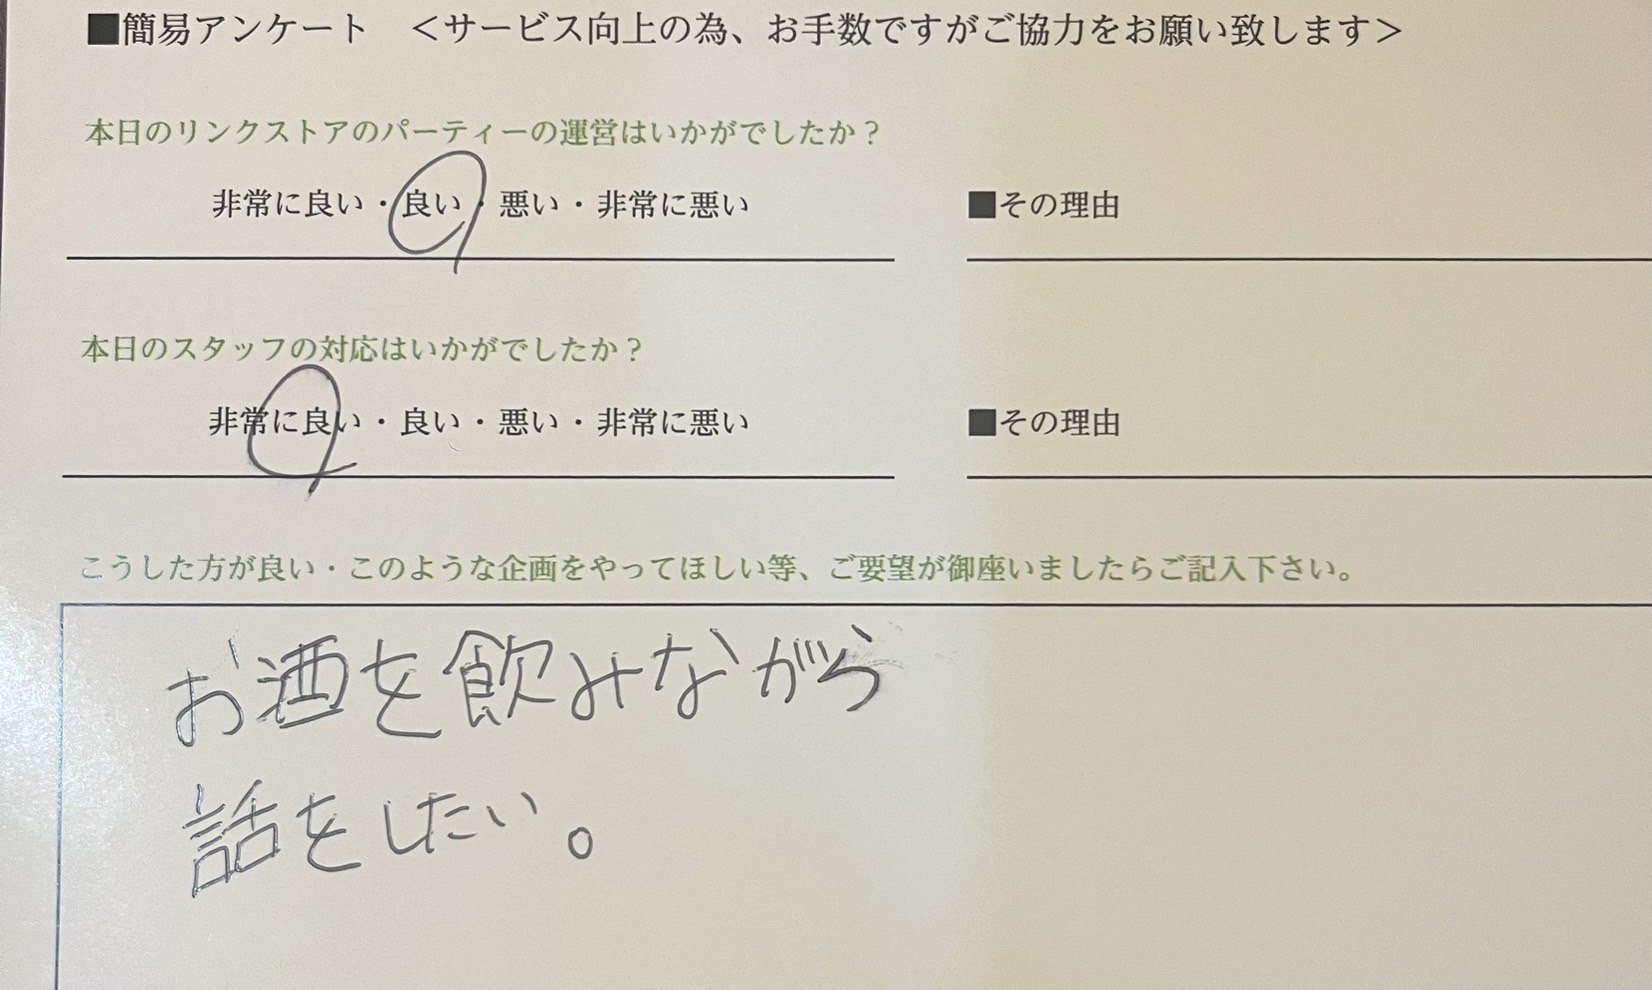 ■簡易アンケート　＜サービス向上の為、お手数ですがご協力をお願い致します＞
本日のリンクストアのパーティーの運営はいかがでしたか？
非常に良い・良い・悪い・非常に悪い　■その理由
本日のスタッフの対応はいかがでしたか？
非常に良い・良い・悪い・非常に悪い　■その理由
こうした方が良い・このような企画をやってほしい等、ご要望が御座いましたらご記入下さい。
お酒を飲みながら
話をしたい。